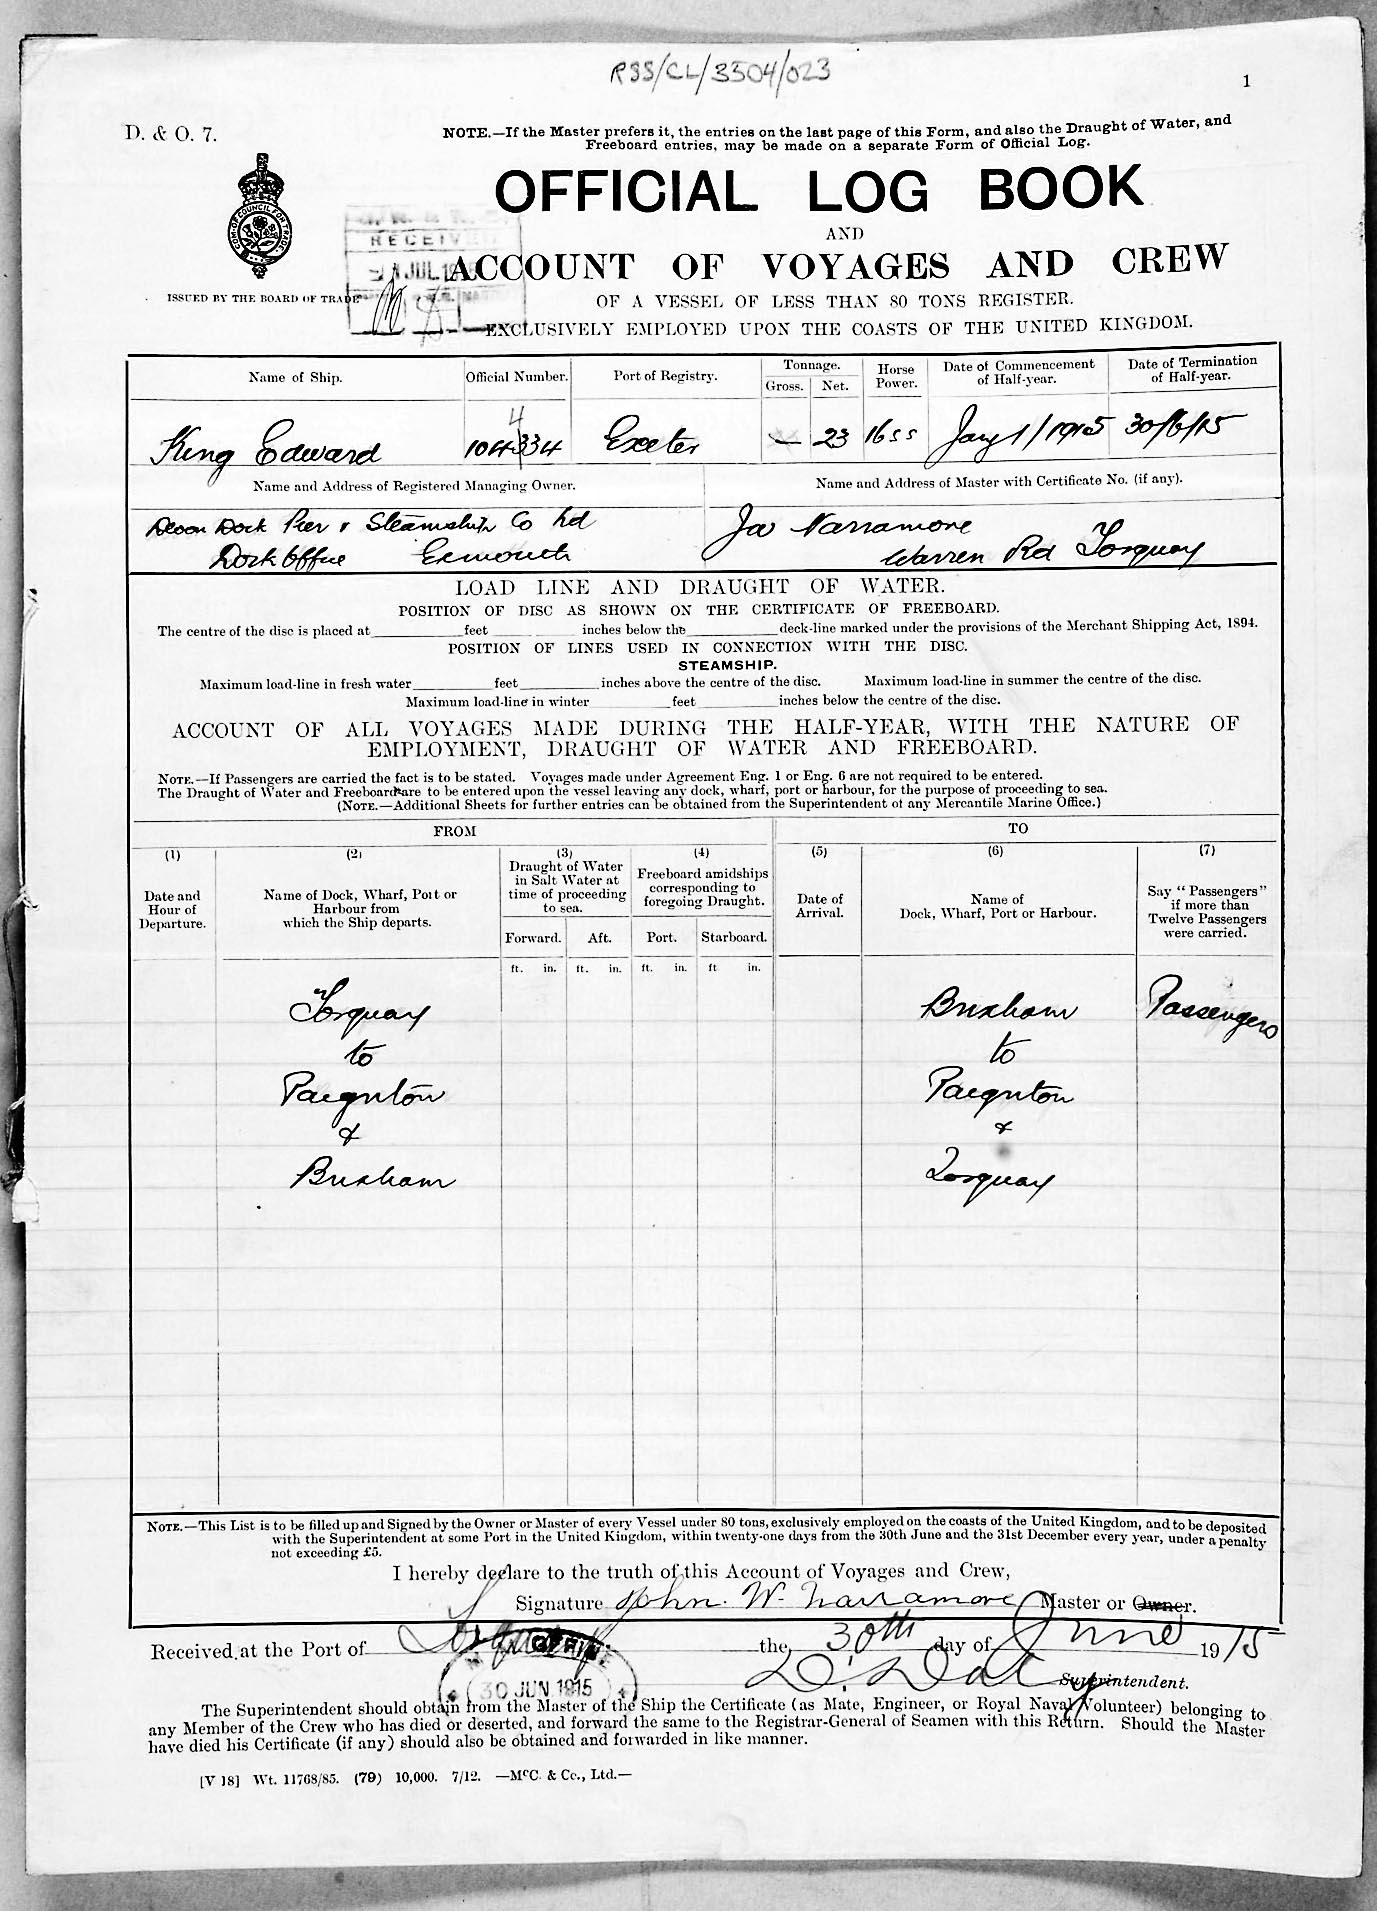 RSS/CL/3504/023
1
D. & O. 7.
NOTE.—If the Master prefers it, the entries on the last page of this Form, and also the Draught of Water, and
Freeboard entries, may be made on a separate Form of Official Log.
OFFICIAL LOG BOOK
AND
RECEIVED
JUL 1915
ACCOUNT OF VOYAGES AND CREW
COM. OF COUNCIL FOR TRADE
ISSUED BY THE BOARD OF TRADE
OF A VESSEL OF LESS THAN 80 TONS REGISTER.
EXCLUSIVELY EMPLOYED UPON THE COASTS OF THE UNITED KINGDOM.
Name of Ship. Official Number. Port of Registry. Tonnage. Gross. Net. Horse Power. Date of Commencement of Half-year. Date of Termination of Half-year.
4
King Edward 104334 Exeter — 23 16 ss Jany 1/1915 30/6/15
Name and Address of Registered Managing Owner. Name and Address of Master with Certificate No. (if any).
Devon Dock Pier & Steamship Co Ld Jw Narramore
Dock Office Exmouth Warren Rd Torquay
LOAD LINE AND DRAUGHT OF WATER.
POSITION OF DISC AS SHOWN ON THE CERTIFICATE OF FREEBOARD.
The centre of the disc is placed at feet inches below the deck-line marked under the provisions of the Merchant Shipping Act, 1894.
POSITION OF LINES USED IN CONNECTION WITH THE DISC.
STEAMSHIP.
Maximum load-line in fresh water feet inches above the centre of the disc. Maximum load-line in summer the centre of the disc.
Maximum load-line in winter feet inches below the centre of the disc.
ACCOUNT OF ALL VOYAGES MADE DURING THE HALF-YEAR, WITH THE NATURE OF
EMPLOYMENT, DRAUGHT OF WATER AND FREEBOARD.
NOTE.—If Passengers are carried the fact is to be stated. Voyages made under Agreement Eng. 1 or Eng. 6 are not required to be entered.
The Draught of Water and Freeboard are to be entered upon the vessel leaving any dock, wharf, port or harbour, for the purpose of proceeding to sea.
(NOTE.—Additional Sheets for further entries can be obtained from the Superintendent of any Mercantile Marine Office.)
FROM TO
(1) (2) (3) (4) (5) (6) (7)
Date and Hour of Departure.
Name of Dock, Wharf, Port or Harbour from which the Ship departs.
Draught of Water in Salt Water at time of proceeding to sea.
Freeboard amidships corresponding to foregoing Draught.
Date of Arrival.
Name of Dock, Wharf, Port or Harbour.
Say "Passengers" if more than Twelve Passengers were carried.
Forward. Aft. Port. Starboard.
ft. in. ft. in. ft. in. ft in.
Torquay Brixham Passengers
to to
Paignton Paignton
& &
Brixham Torquay
NOTE.—This List is to be filled up and Signed by the Owner or Master of every Vessel under 80 tons, exclusively employed on the coasts of the United Kingdom, and to be deposited
with the Superintendent at some Port in the United Kingdom, within twenty-one days from the 30th June and the 31st December every year, under a penalty
not exceeding £5.
I hereby declare to the truth of this Account of Voyages and Crew,
Signature John W. Narramore Master or Owner.
Received at the Port of Torquay the 30th day of June 1915
30 JUN.1915
D. Daly Superintendent.
The Superintendent should obtain from the Master of the Ship the Certificate (as Mate, Engineer, or Royal Naval Volunteer) belonging to
any Member of the Crew who has died or deserted, and forward the same to the Registrar-General of Seamen with this Return. Should the Master
have died his Certificate (if any) should also be obtained and forwarded in like manner.
[V 18] Wt. 11768/85. (79) 10,000. 7/12. —McC. & Co., Ltd.—